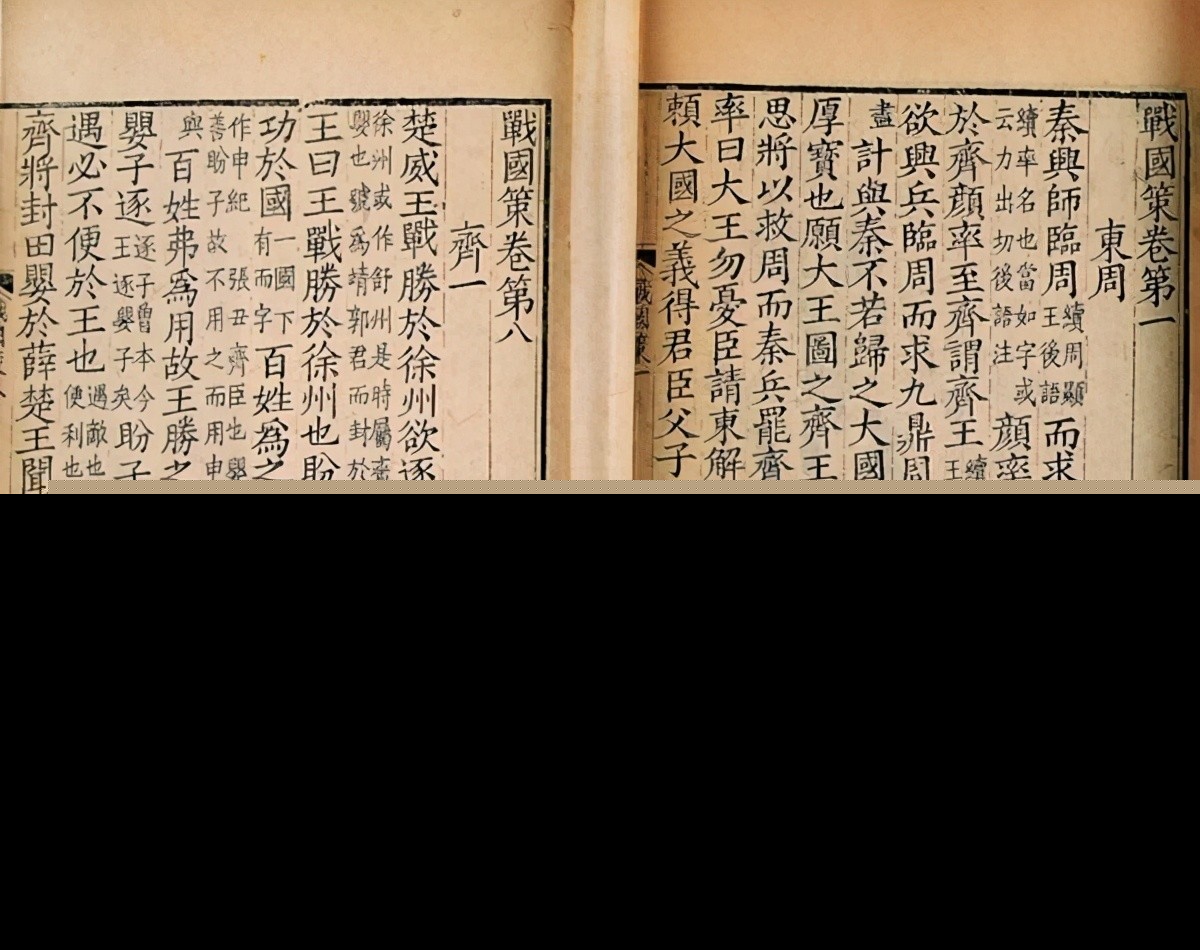 戰國策卷第一
東周
秦興師臨周續周顯王後語而求
續率名也當如字或云力出切後語注顔率
於齊顔率至齊謂齊王續王
欲興兵臨周而求九鼎周
盡計與秦不若歸之大國
厚寶也願大王圖之齊王
思將以救周而秦兵罷齊
率曰大王勿憂臣請東解
頼大國之義得君臣父子
戰國策卷第八
齊一
楚威王戰勝於徐州欲逐
徐州或作舒州是時屬齊嬰也號爲靖郭君而封於
王曰王戰勝於徐州也盼
功於國一國下有而字百姓爲之
作申紀張丑齊臣也嬰善盼子故不用之而用申
與百姓弗爲用故王勝之
嬰子逐逐子曾本今王逐嬰子矣盼子
遇必不便於王也遇敵也便利也
齊將封田嬰於薛楚王聞